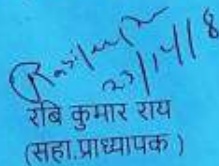 23/14/18
रबि कुमार राय
(सहा.प्राध्यापक )